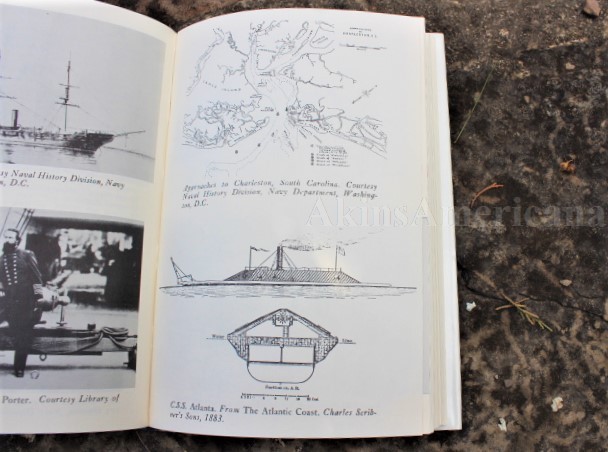 sy Naval History Division, Navy
n, D.C.
Porter. Courtesy Library of
CHARLESTON, S.C.
Approaches to Charleston, South Carolina. Courtesy
Naval History Division, Navy Department, Washing-
ton, D.C.
AkinsAmericana
C.S.S. Atlanta. From The Atlantic Coast. Charles Scrib-
ner's Sons, 1883.